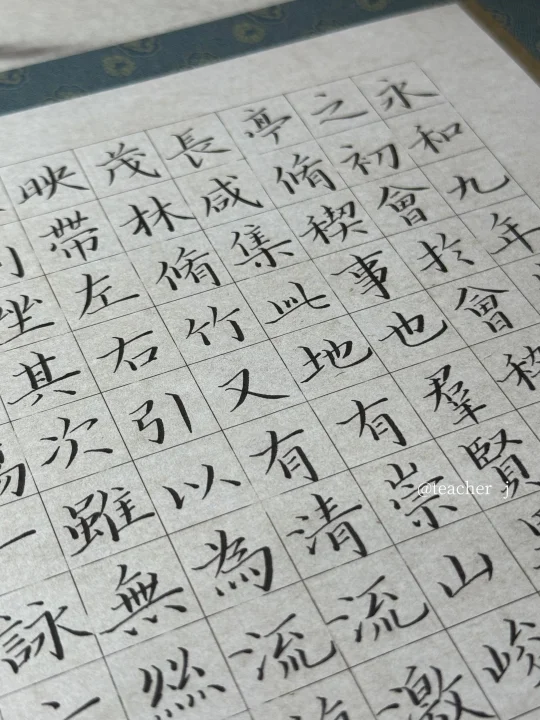 永和九年
之初會於會稽
亭脩稧事也羣賢
長咸集此地有崇山峻
茂林脩竹又有清流激
映帶左右引以為流
列坐其次雖無絲
觴一詠
@teacher j